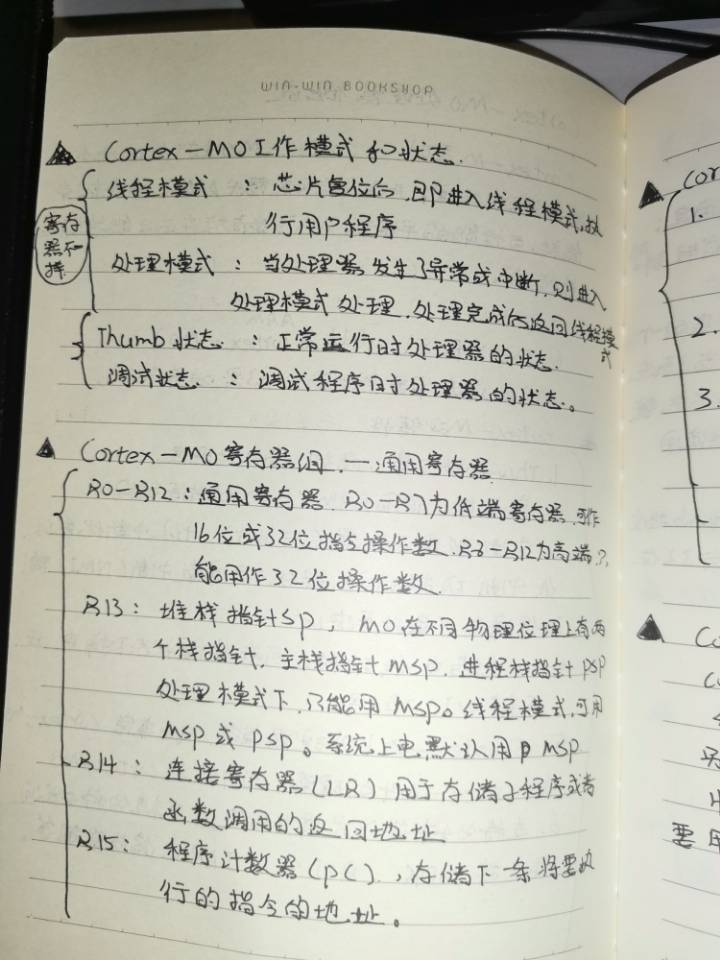 WIN-WIN BOOKSHOP
Cortex-M0工作模式和状态.
线程模式 : 芯片复位后,即进入线程模式,执
行用户程序
寄存
器不一
样
处理模式 : 当处理器发生了异常或中断,则进入
处理模式处理,处理完成后返回线程模
式
Thumb状态 : 正常运行时处理器的状态.
调试状态 : 调试程序时处理器的状态。
Cortex-M0寄存器组.一通用寄存器
R0-R12:通用寄存器.R0-R7为低端寄存器,可作
16位或32位指令操作数.R8-R12为高端,只
能用作32位操作数.
R13: 堆栈指针SP,M0在不同物理位理上有两
个栈指针,主栈指针MSP.进程栈指针PSP
处理模式下,只能用MSP。线程模式,可用
MSP或PSP。系统上电默认用 MSP
R14: 连接寄存器(LR)用于存储子程序或者
函数调用的返回地址
R15: 程序计数器(PC),存储下一条将要执
行的指令的地址。
Cor
1.
2.
3.
Co
要用